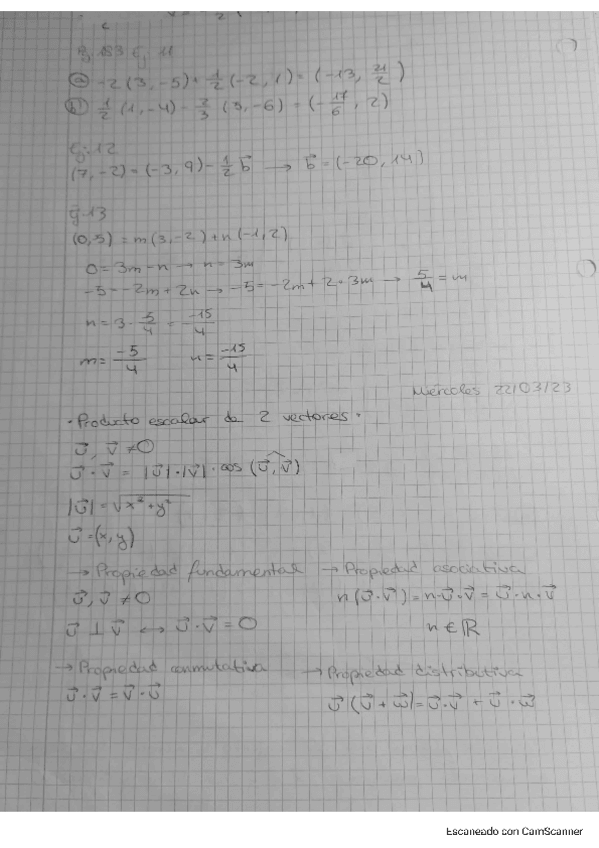 Pg. 183 Ej. 11
a) -2(3, -5) + 1/2 (-2, 1) = (-13, 21/2)
b) 1/2 (1, -4) - 2/3 (3, -6) = (-17/6, 2)
Ej. 12
(7, -2) = (-3, 9) - 1/2 b⃗ → b⃗ = (-20, 14)
Ej. 13
(0, 5) = m(3, -2) + n(-1, 2)
0 = 3m - n → n = 3m
-5 = -2m + 2n → -5 = -2m + 2·3m → 5/4 = m
n = 3 · 5/4 = -15/4
m = -5/4 n = -15/4
Miércoles 22/03/23
· Producto escalar de 2 vectores ·
u⃗, v⃗ ≠ 0
u⃗ · v⃗ = |u⃗| · |v⃗| · cos (u⃗, v⃗)
|u⃗| = √x² + y²
u⃗ = (x, y)
→ Propiedad fundamental → Propiedad asociativa
u⃗, v⃗ ≠ 0 n(u⃗ · v⃗) = n · u⃗ · v⃗ = u⃗ · n · v⃗
u⃗ ⊥ v⃗ ↔ u⃗ · v⃗ = 0 n ∈ ℝ
→ Propiedad conmutativa → Propiedad distributiva
u⃗ · v⃗ = v⃗ · u⃗ u⃗ (v⃗ + w⃗) = u⃗ · v⃗ + u⃗ · w⃗
Escaneado con CamScanner